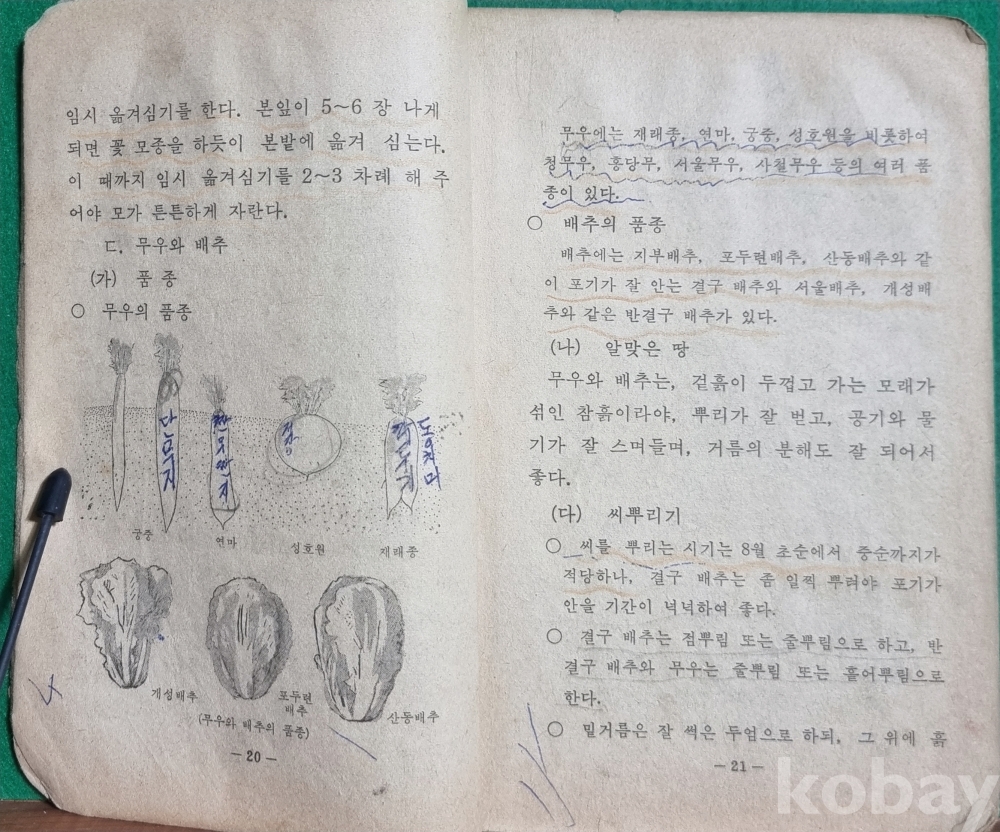 임시 옮겨심기를 한다. 본잎이 5~6 장 나게
되면 꽃 모종을 하듯이 본밭에 옮겨 심는다.
이 때까지 임시 옮겨심기를 2~3 차례 해 주
어야 모가 튼튼하게 자란다.
ㄷ. 무우와 배추
(가) 품 종
○ 무우의 품종
단무지
궁중
연마
성호원
재래종
개성배추
포두련
배추
산동배추
(무우와 배추의 품종)
— 20 —
무우에는 재래종, 연마, 궁중, 성호원을 비롯하여
청무우, 홍당무, 서울무우, 사철무우 등의 여러 품
종이 있다.
○ 배추의 품종
배추에는 지부배추, 포두련배추, 산동배추와 같
이 포기가 잘 안는 결구 배추와 서울배추, 개성배
추와 같은 반결구 배추가 있다.
(나) 알맞은 땅
무우와 배추는, 겉흙이 두껍고 가는 모래가
섞인 참흙이라야, 뿌리가 잘 벋고, 공기와 물
기가 잘 스며들며, 거름의 분해도 잘 되어서
좋다.
(다) 씨뿌리기
○ 씨를 뿌리는 시기는 8월 초순에서 중순까지가
적당하나, 결구 배추는 좀 일찍 뿌려야 포기가
안을 기간이 넉넉하여 좋다.
○ 결구 배추는 점뿌림 또는 줄뿌림으로 하고, 반
결구 배추와 무우는 줄뿌림 또는 흩어뿌림으로
한다.
○ 밑거름은 잘 썩은 두엄으로 하되, 그 위에 흙
— 21 —
kobay